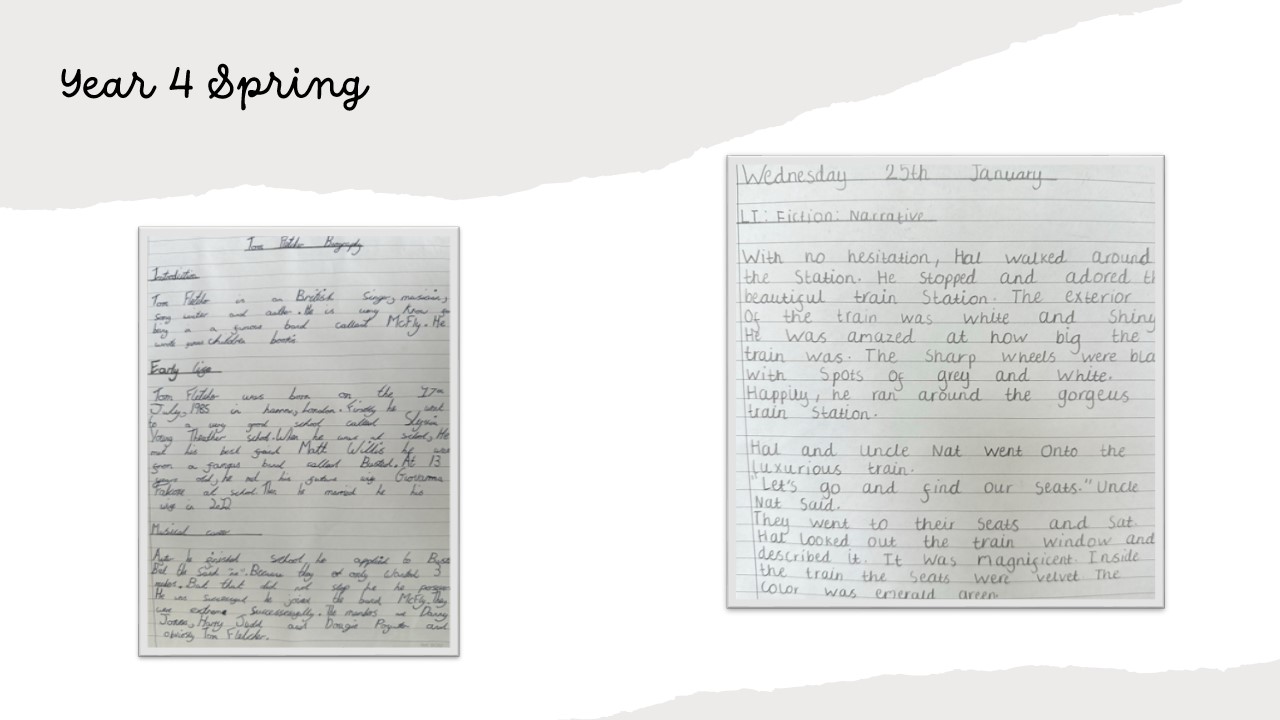 Year 4 Spring
Tom Fletcher Biography
Introduction
Tom Fletcher is an British singer, musician,
song writer and author. He is very know
being in a famous band callant McFly. He
wrote children books
Early life
Tom Fletcher was born on the 17th
July, 1985 in harrow, London. Firstly he went
to a very good school called Slyvia
Young Theather school. When he was at school, He
met his best friend Matt Willis he was
from a famous band callant Busted. At 13
years old, he met his future wife Giovanna
Falcone at school. Then he married he his
wife in 2012
Musical
he finished school he applied to Bust
But the said "no". Because they only wanted 3
But that did not stop he he
He was he joined the band McFly. They
was extreme successfully. The members Danny
Jones, Harry Judd and Dougie Poynter and
obviosly Tom Fletcher.
Wednesday 25th January
LI: Fiction: Narrative
With no hesitation, Hal walked around
the Station. He stopped and adored th
beautiful train Station. The exterior
Of the train was white and Shiny
He was amazed at how big the
train was. The Sharp wheels were bla
with Spots Of grey and white.
Happily, he ran around the gorgeus
train Station.
Hal and uncle Nat went Onto the
luxurious train.
"Let's go and find our seats." Uncle
Nat Said.
They went to their Seats and Sat.
Hal Looked out the train window and
described it. It was magnificent. Inside
the train the seats were velvet. The
color was emerald green.